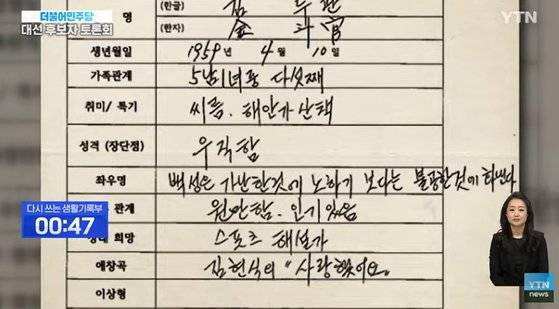 더불어민주당
대선 후보자 토론회
YTN
명
(한글) 김 두 관
(한자) 金 斗 官
생년월일 1959년 4월 10일
가족관계 5남1녀중 다섯째
취미/ 특기 씨름. 해안가 산책
성격 (장단점) 우직함
좌우명 백성은 가난한것에 노하기 보다는 불공정한것에
관계 원만함. 인기있음
다시 쓰는 생활기록부
00:47
희망 스포츠 해설가
애창곡 김현식의 "사랑했어요"
이상형
YTN
news